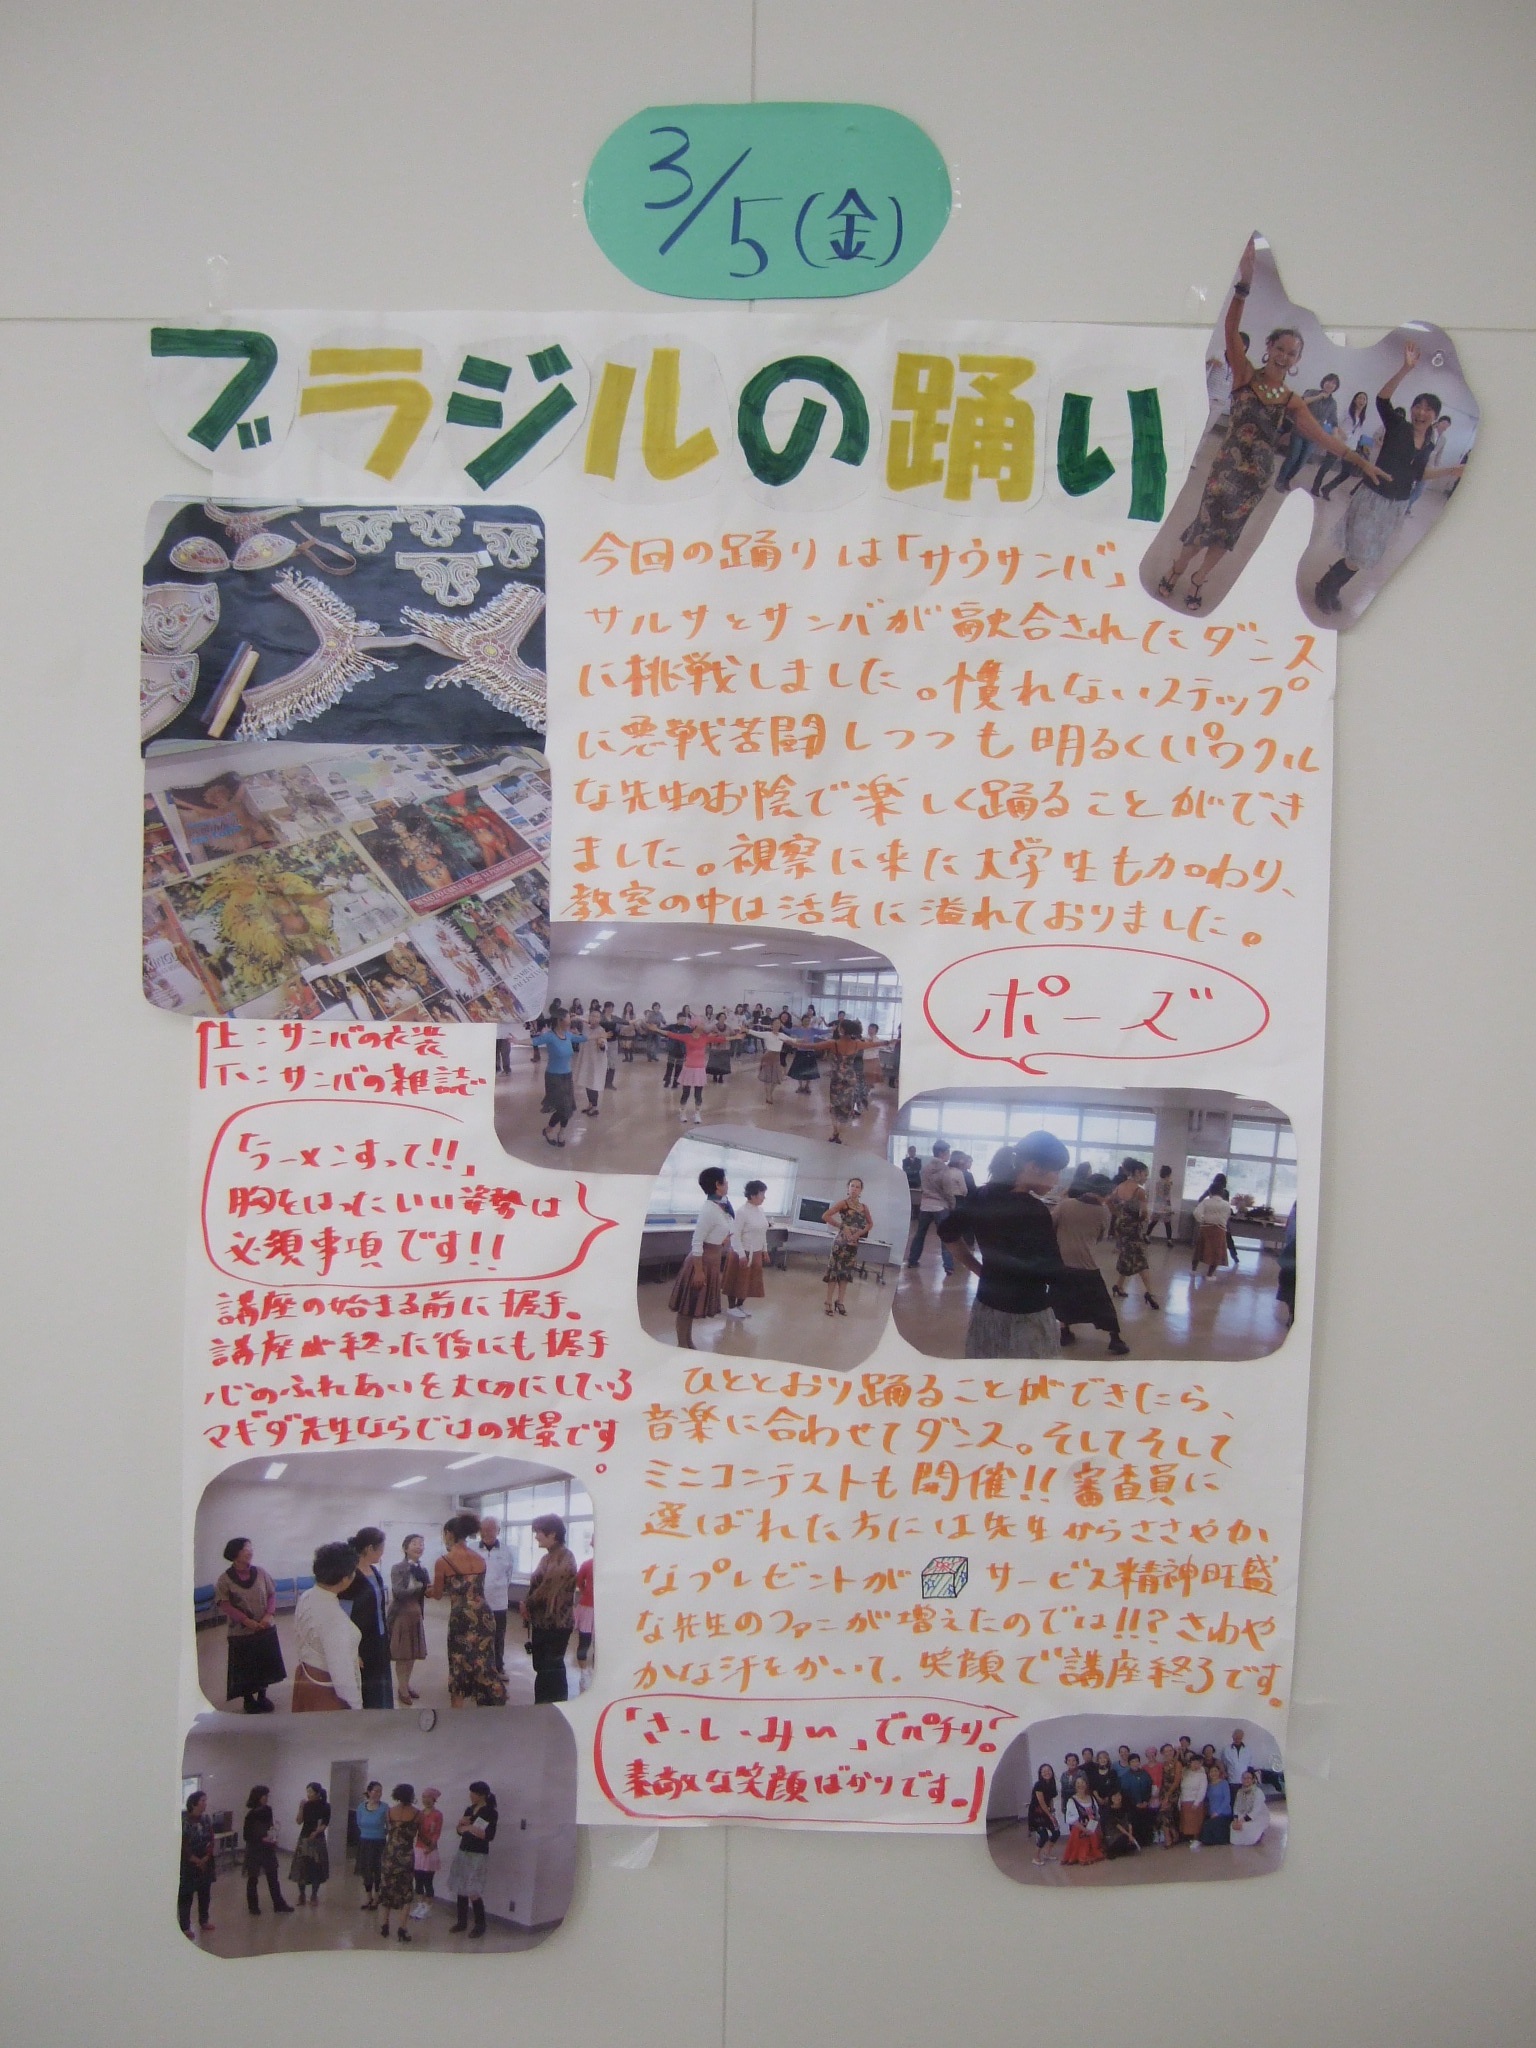 3/5(金)
ブラジルの踊り
今回の踊りは「サウサンバ」
サルサとサンバが融合されたダンス
に挑戦しました。慣れないステップ
に悪戦苦闘しつつも明るくパワフル
な先生のお陰で楽しく踊ることができ
ました。視察に来た大学生も加わり、
教室の中は活気に溢れておりました。
ポーズ
上:サンバの衣装
下:サンバの雑誌
「ラーメンすって!!」
胸をはったいい姿勢は
必須事項です!!
講座の始まる前に握手。
講座が終った後にも握手
心のふれあいを大切にしている
マギダ先生ならではの光景です
。
ひととおり踊ることができたら、
音楽に合わせてダンス。そしてそして
ミニコンテストも開催!!審査員に
選ばれた方には先生からささやか
なプレゼントが サービス精神旺盛
な先生のファンが増えたのでは!!?さわや
かな汗をかいて、笑顔で講座終了です。
「さ・し・み〜」でパチリ。
素敵な笑顔ばかりです。